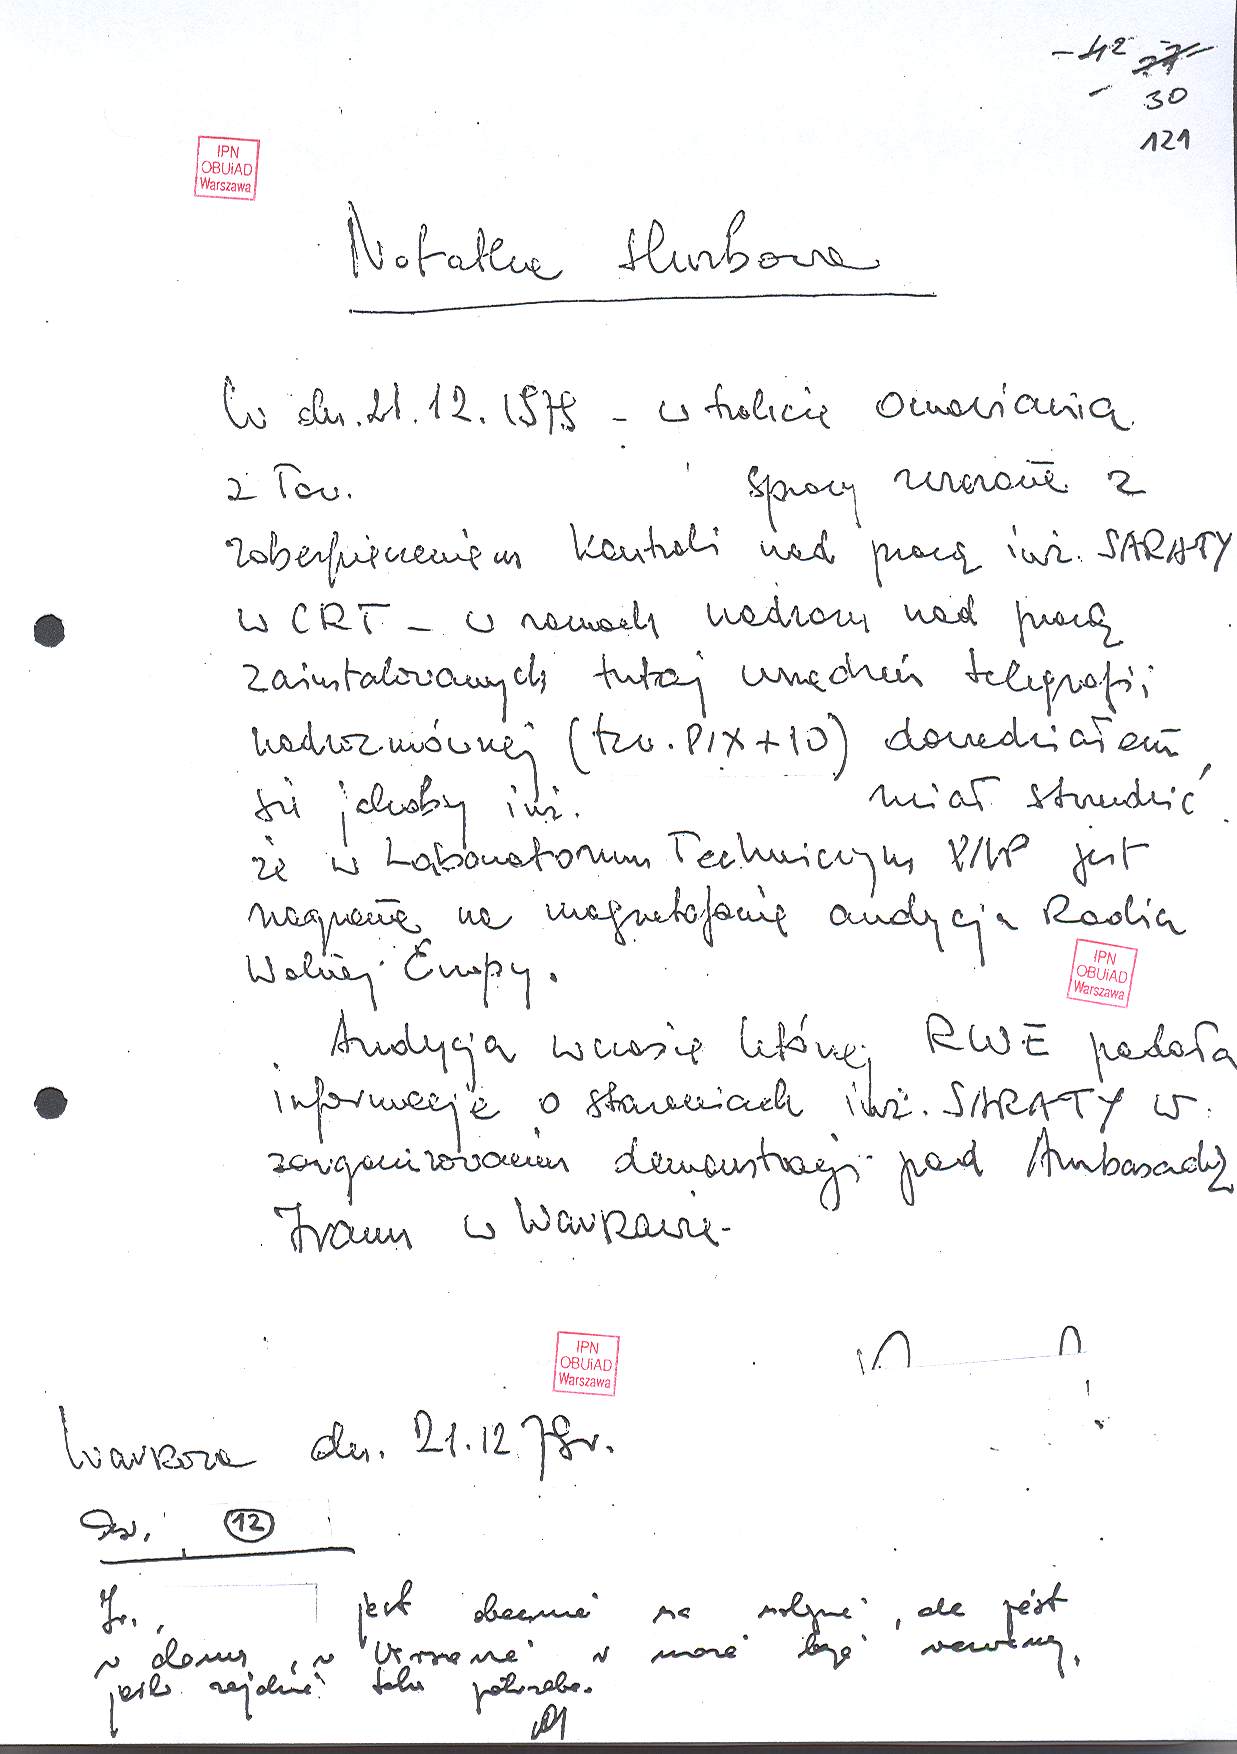 - 42 21
- 30
121
IPN
OBUiAD
Warszawa
Notatka służbowa
W dn. 21.12.1979 - w trakcie omawiania
z Tow. sprawy związane z
zabezpieczeniem kontroli nad pracą inż. SARATY
w CRT - w ramach nadzoru nad pracą
zainstalowanych tutaj urządzeń telegrafii
nadrozmównej (tzw. PIX+10) dowiedziałem
się jakoby inż. miał stwierdzić
że w Laboratorium Technicznym jest
nagrana na magnetofonie audycja Radia
Wolnej Europy.
IPN
OBUiAD
Warszawa
Audycja w czasie której RWE podała
informację o staraniach inż. SARATY w
zorganizowaniu demonstracji pod Ambasadą
Iranu w Warszawie-
IPN
OBUiAD
Warszawa
Warszawa dn. 21.12.79r.
12
jest obecnie na, ale jest
w domu, w Warszawie i może być wezwany,
jeśli zajdzie taka potrzeba.